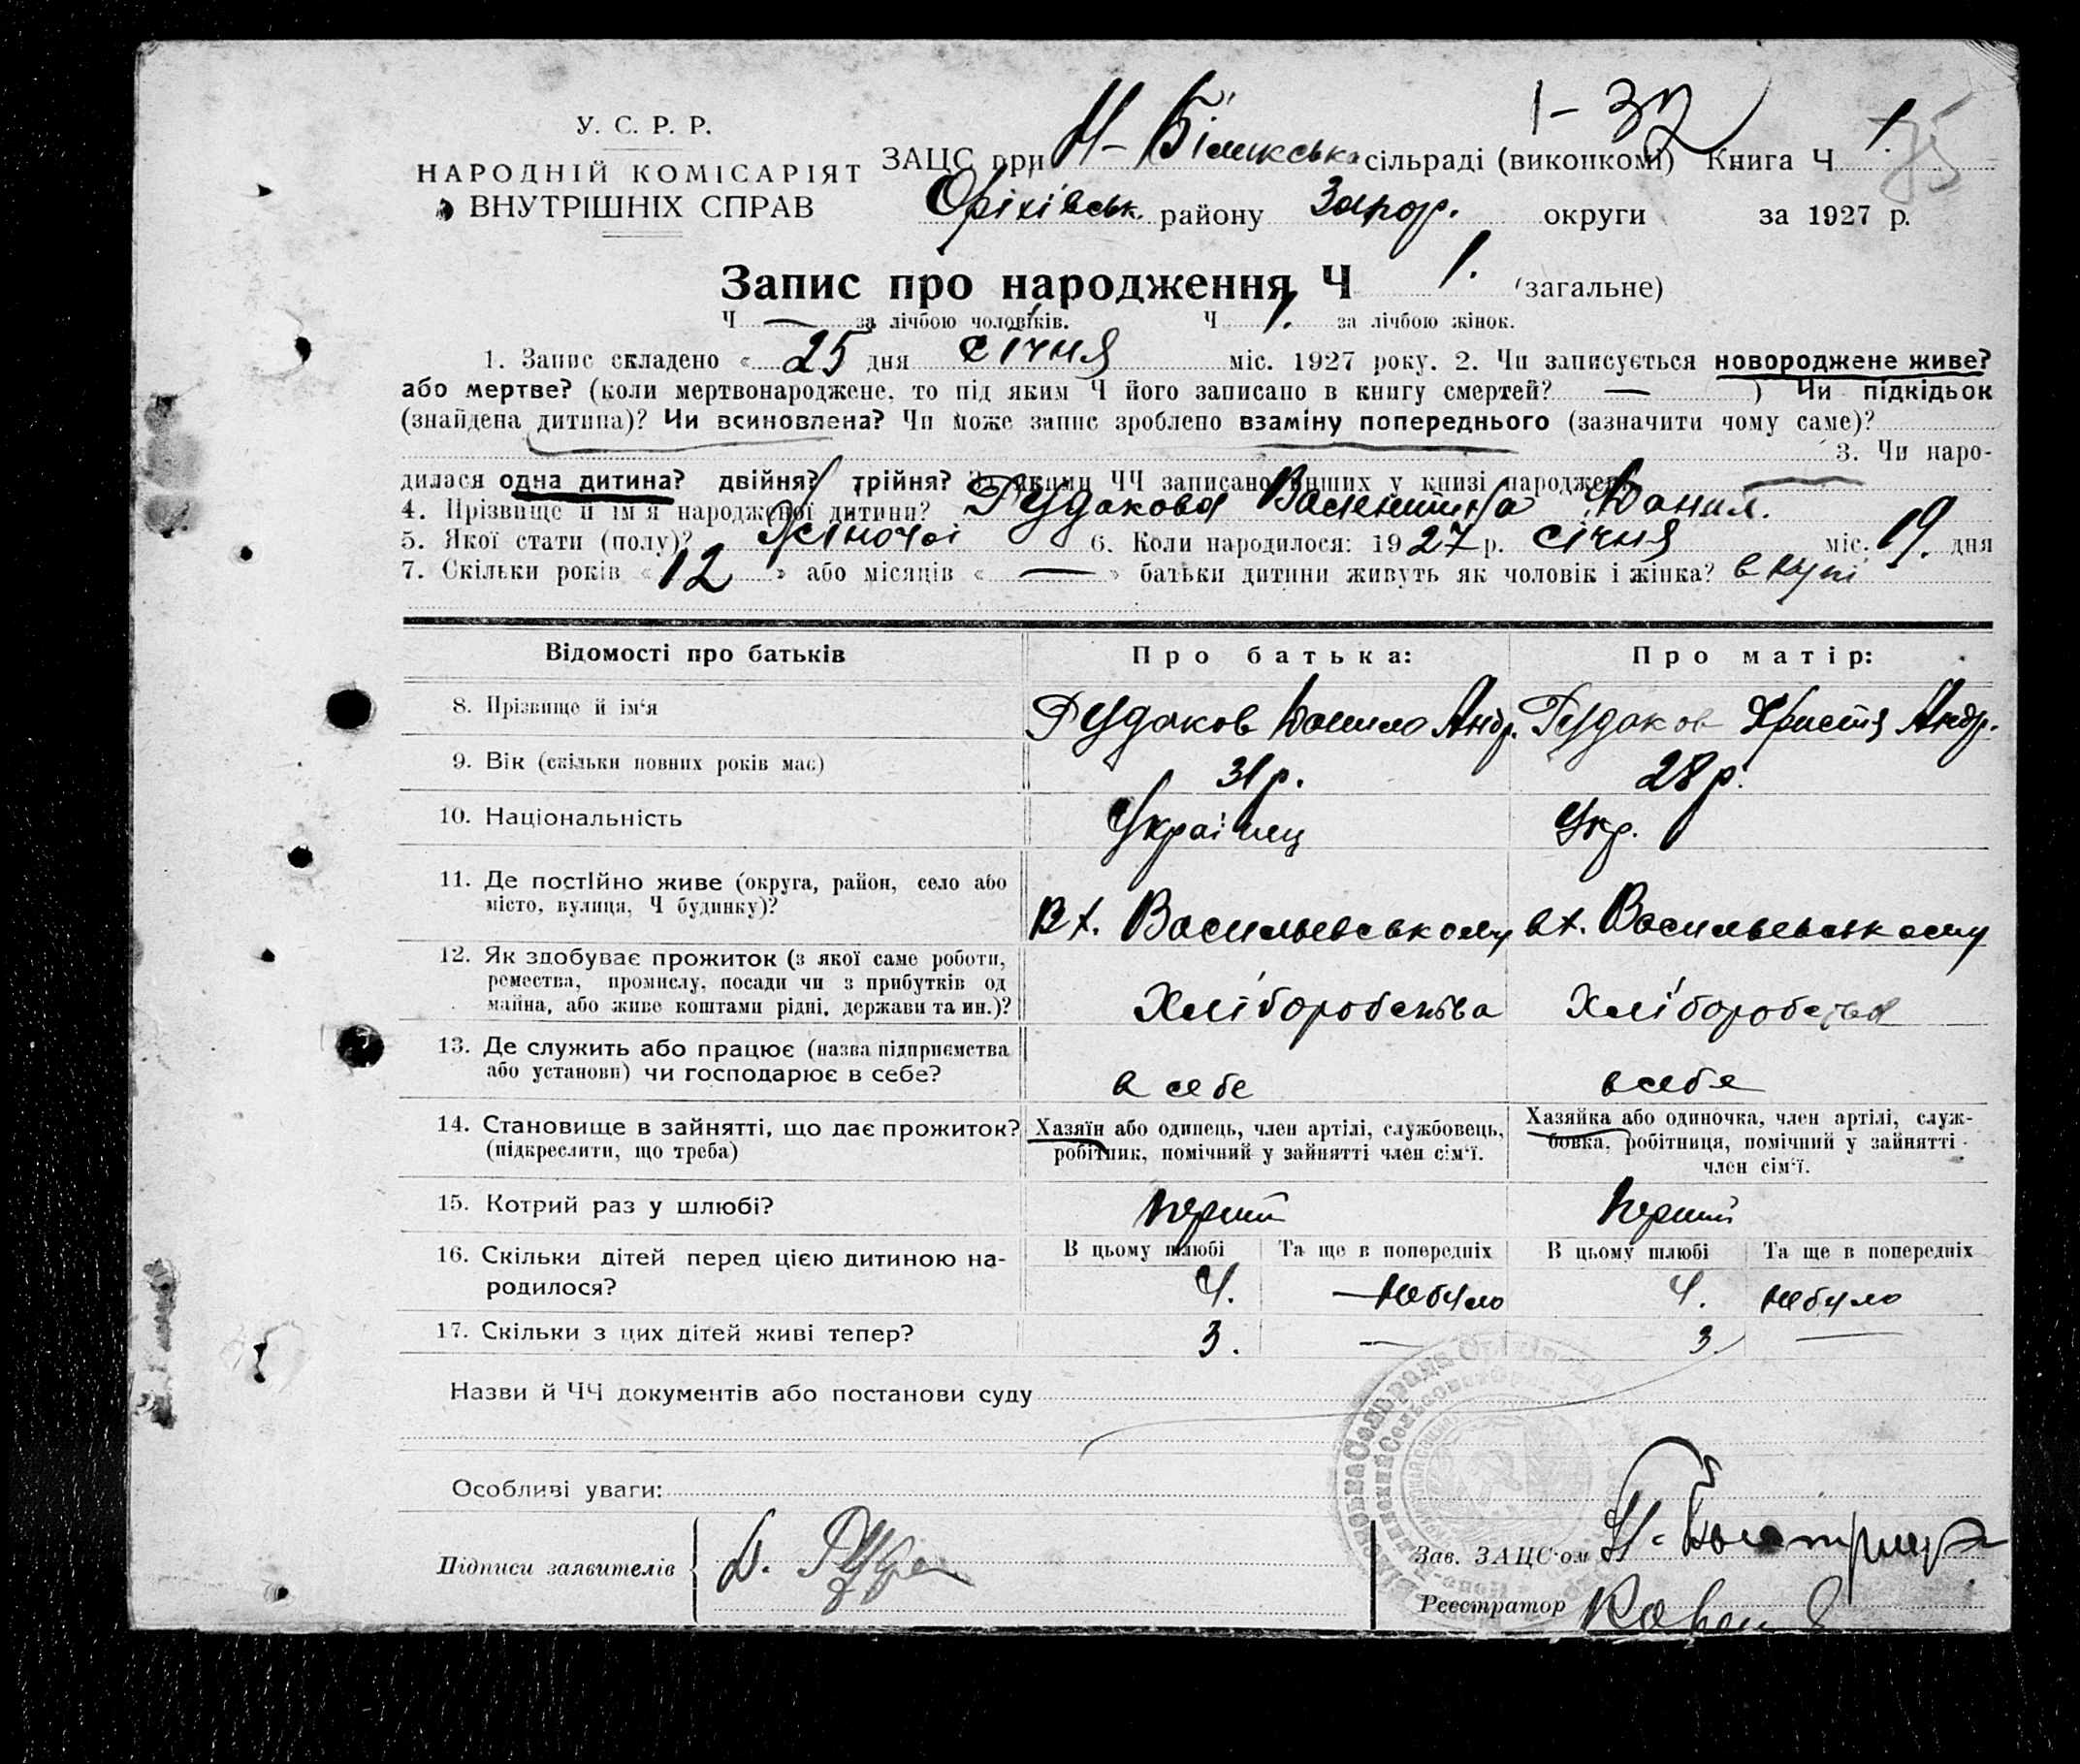 1-32
У. С. Р. Р.
НАРОДНІЙ КОМІСАРІЯТ
ВНУТРІШНІХ СПРАВ
ЗАЦС при сільраді (виконкомі) Книга Ч 1. 75
Оріхівськ. району Запор. округи за 1927 р.
Запис про народження Ч 1. (загальне)
Ч — за лічбою чоловіків. Ч 1. за лічбою жінок.
1. Запис складено « 25 дня січня міс. 1927 року. 2. Чи записується новороджене живе?
або мертве? (коли мертвонароджене, то під яким Ч його записано в книгу смертей? — ) Чи підкідьок
(знайдена дитина)? Чи всиновлена? Чи може запис зроблено взаміну попереднього (зазначити чому саме)?
3. Чи наро-
дилася одна дитина? двійня? трійня? За якими ЧЧ записано инших у книзі народжень
4. Прізвище й ім'я народженої дитини? Рудакова Валентина Данил.
5. Якої стати (полу)? Жіночої 6. Коли народилося: 1927 р. січня міс. 19. дня
7. Скільки років « 12 » або місяців « — » батьки дитини живуть як чоловік і жінка? вкупі
Відомості про батьків Про батька: Про матір:
8. Прізвище й ім'я Рудаков Данило Андр. Рудаков Христя Андр.
9. Вік (скільки повних років має) 31 р. 28 р.
10. Національність Українец Укр.
11. Де постійно живе (округа, район, село або
місто, вулиця, Ч будинку)? в х. Васильевському в х. Васильевському
12. Як здобуває прожиток (з якої саме роботи,
ремества, промислу, посади чи з прибутків од
майна, або живе коштами рідні, держави та ин.)? Хліборобства Хліборобства
13. Де служить або працює (назва підприємства
або установи) чи господарює в себе? в себе в себе
14. Становище в зайнятті, що дає прожиток?
(підкреслити, що треба)
Хазяїн або одинець, член артілі, службовець,
робітник, помічний у зайнятті член сім'ї.
Хазяйка або одиночка, член артілі, служ-
бовка, робітниця, помічний у зайнятті
член сім'ї.
15. Котрий раз у шлюбі? перший перший
16. Скільки дітей перед цією дитиною на-
родилося?
В цьому шлюбі Та ще в попередніх В цьому шлюбі Та ще в попередніх
4. — небуло 4. небуло
17. Скільки з цих дітей живі тепер? 3. — 3. —
Назви й ЧЧ документів або постанови суду
Особливі уваги:
Підписи заявителів Д.
Зав. ЗАЦС'ом
Реєстратор